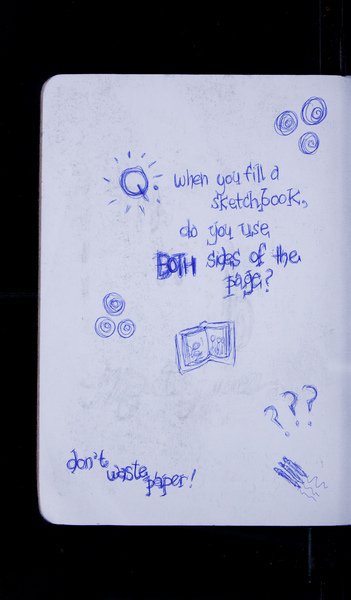 Q. when you fill a
sketchbook,
do you use
BOTH sides of the
page?
???
don't waste paper!